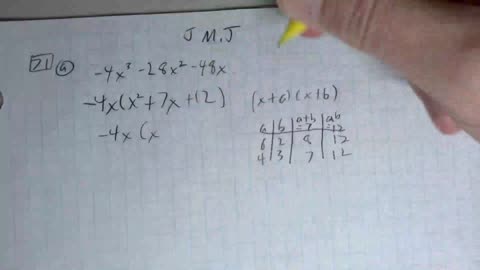 J M.J
21 a
-4x³ -28x² -48x
-4x(x² + 7x + 12) (x+a)(x+b)
-4x (x
a b a+b =7 ab =12
6 2 8 12
4 3 7 12